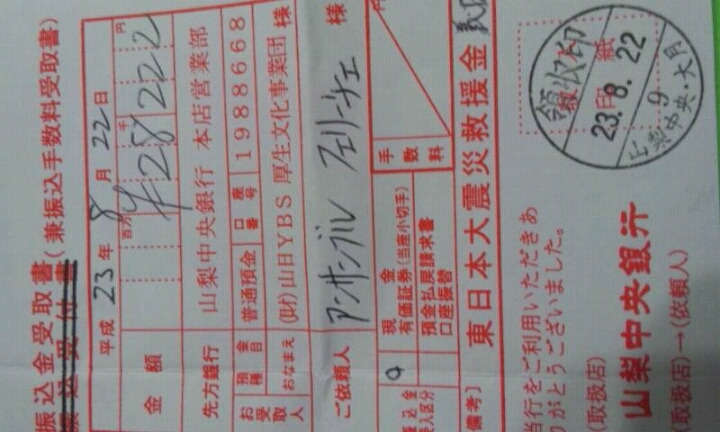 振込金受取書(兼振込手数料受取書)
振込受付書
平成23年8月22日
金額 百万 千 円
¥28222
先方銀行 山梨中央銀行 本店営業部
お受取人 預金種目 普通預金 口座番号 1988668
おなまえ (財)山日YBS厚生文化事業団 様
ご依頼人 アンサンブル フェリーチェ 様
現金
有価証券(当座小切手)
預金払戻請求書
口座振替
手数料 円
備考] 東日本大震災救援金
当行をご利用いただきあ
りがとうございました。
(取扱店)
山梨中央銀行
(取扱店)→(依頼人)
印紙
領収印
23.8.22
9
山梨中央・大月